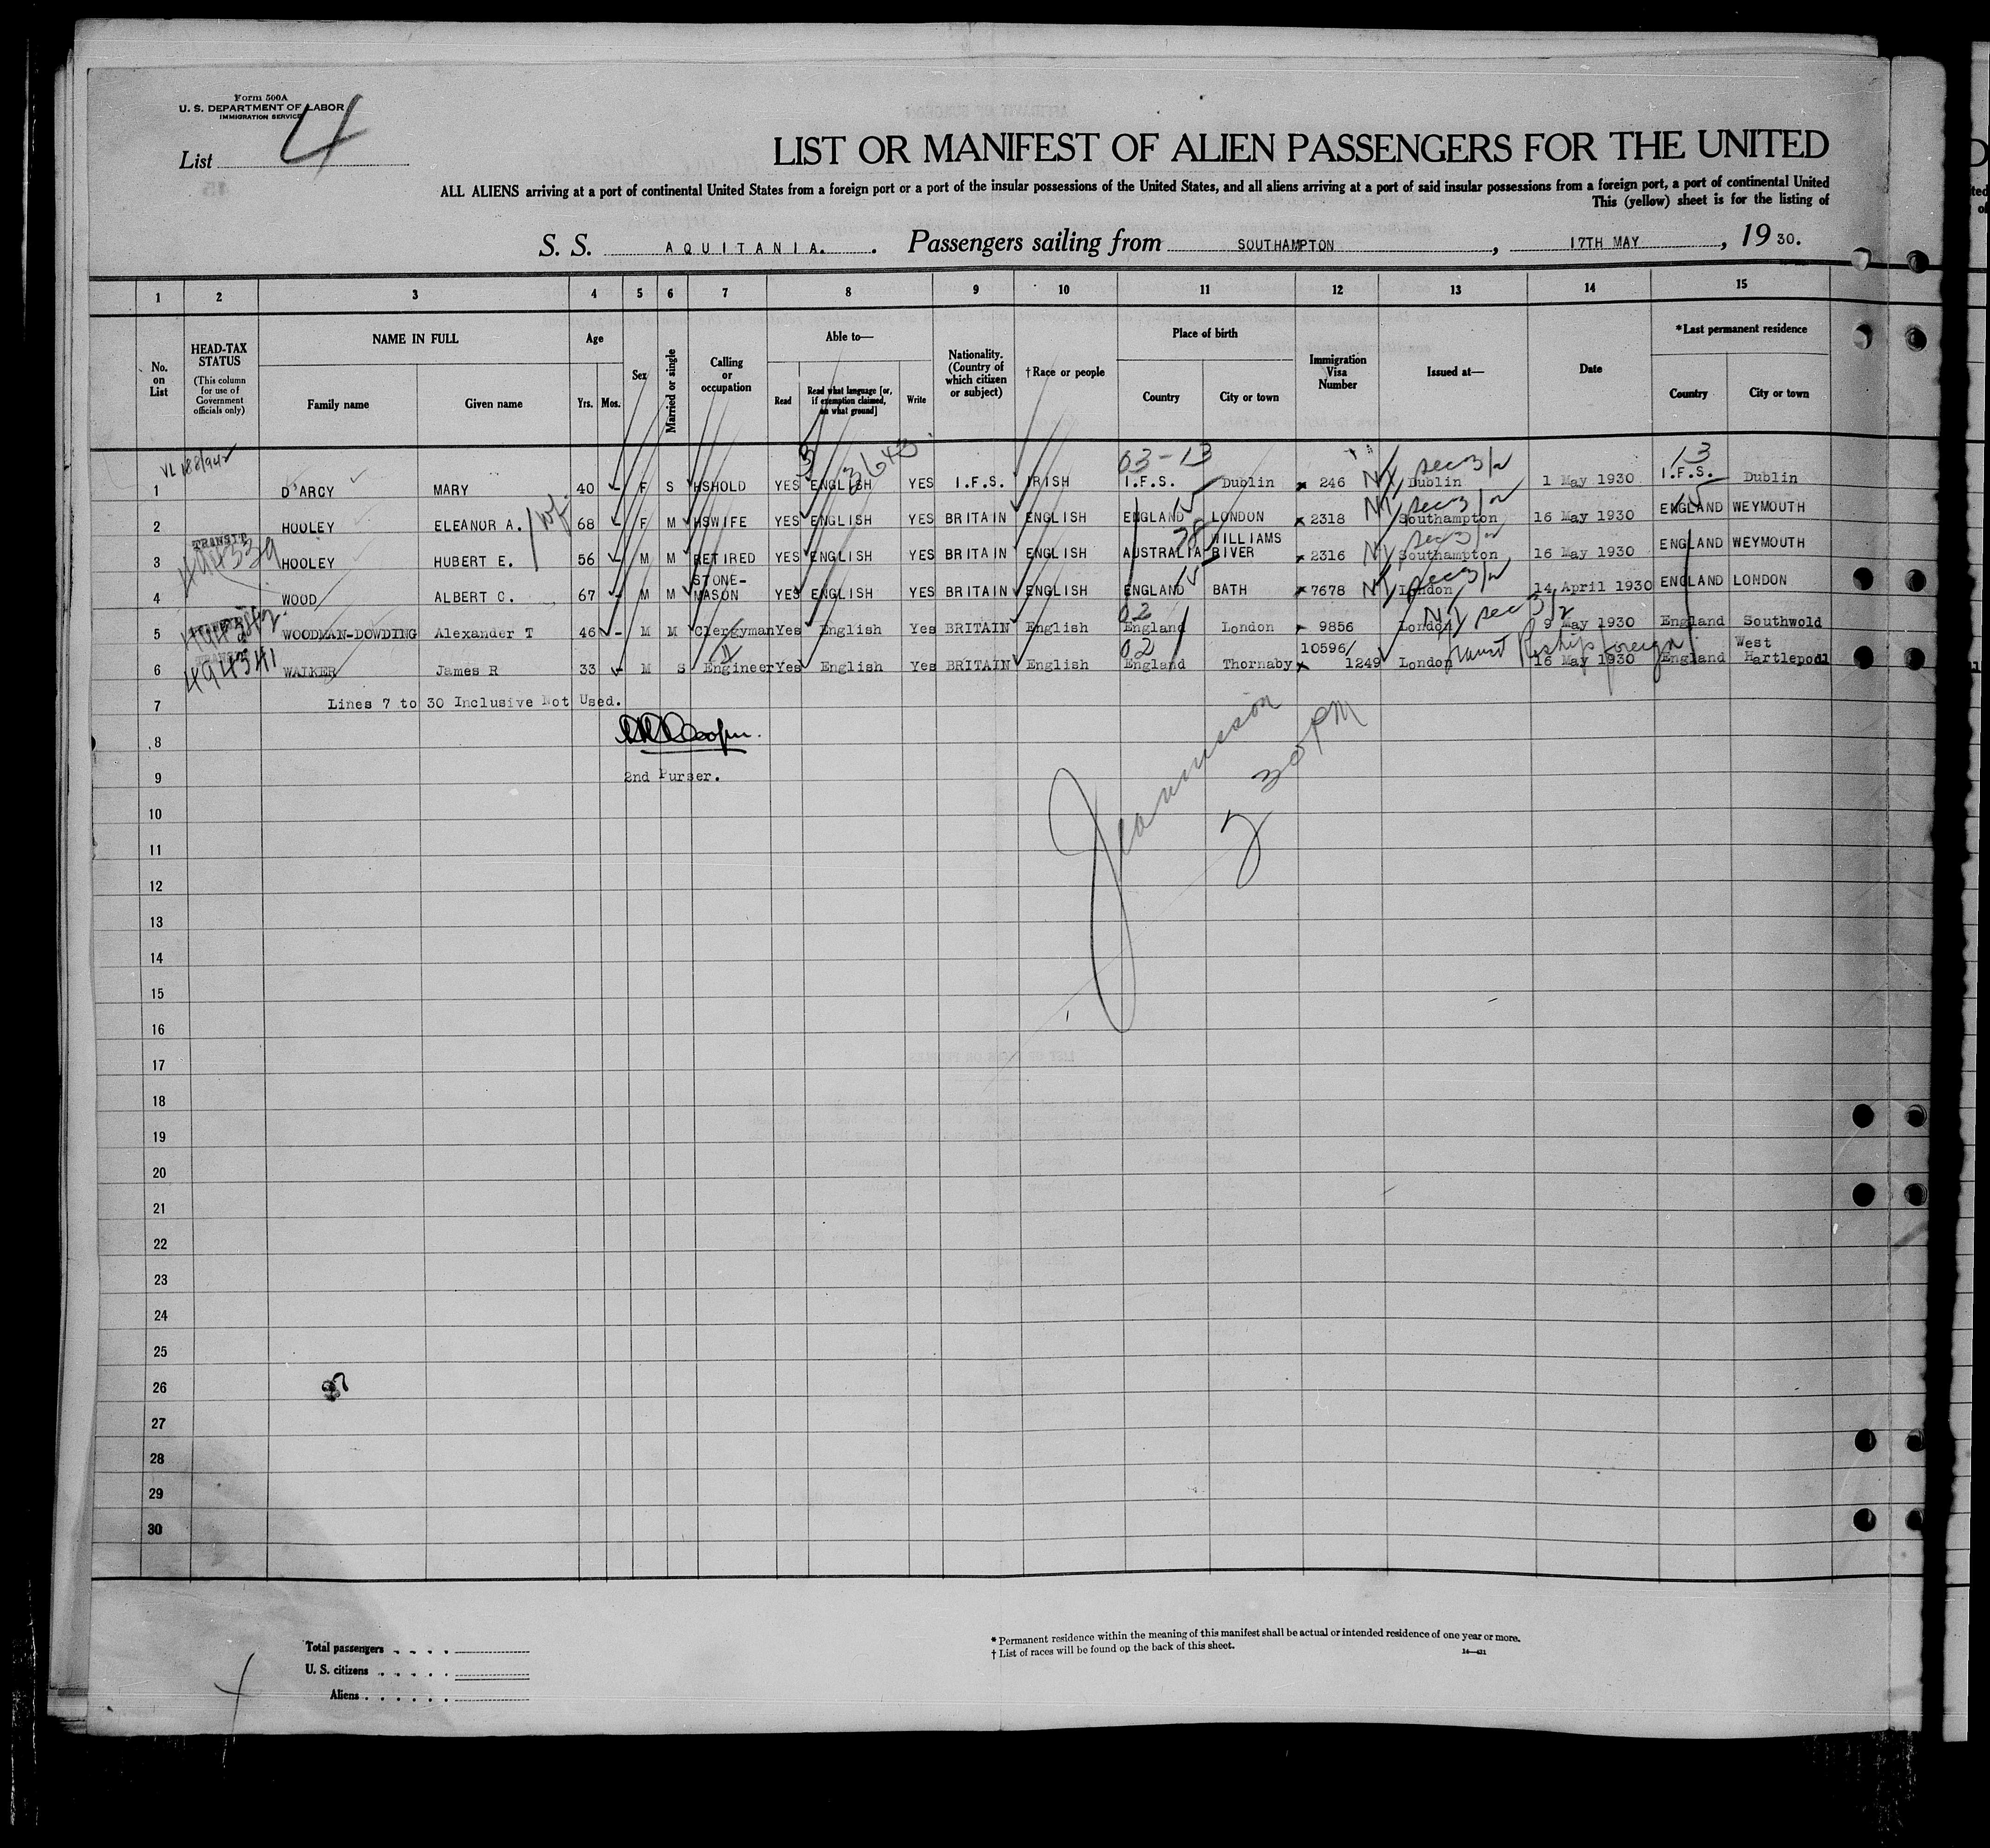 Form 500A
U. S. DEPARTMENT OF LABOR
IMMIGRATION SERVICE
List 4
LIST OR MANIFEST OF ALIEN PASSENGERS FOR THE UNITED
ALL ALIENS arriving at a port of continental United States from a foreign port or a port of the insular possessions of the United States, and all aliens arriving at a port of said insular possessions from a foreign port, a port of continental United
This (yellow) sheet is for the listing of
S. S. AQUITANIA. Passengers sailing from SOUTHAMPTON, 17TH MAY, 1930.
1 2 3 4 5 6 7 8 9 10 11 12 13 14 15
No. on List
HEAD-TAX STATUS
(This column for use of Government officials only)
NAME IN FULL
Family name Given name
Age
Yrs. Mos.
Sex
Married or single
Calling or occupation
Able to—
Read
Read what language [or, if exemption claimed, on what ground]
Write
Nationality. (Country of which citizen or subject)
†Race or people
Place of birth
Country City or town
Immigration Visa Number
Issued at—
Date
*Last permanent residence
Country City or town
03-13 13
1 D'ARCY MARY 40 F S HSHOLD YES ENGLISH YES I.F.S. IRISH I.F.S. Dublin 246 NY sec 3/2 Dublin 1 May 1930 I.F.S. Dublin
2 HOOLEY ELEANOR A. 68 F M HSWIFE YES ENGLISH YES BRITAIN ENGLISH ENGLAND LONDON 2318 NY sec 3/2 Southampton 16 May 1930 ENGLAND WEYMOUTH
3 TRANSIT 494339 HOOLEY HUBERT E. 56 M M RETIRED YES ENGLISH YES BRITAIN ENGLISH AUSTRALIA WILLIAMS RIVER 2316 NY sec 3/2 Southampton 16 May 1930 ENGLAND WEYMOUTH
4 WOOD ALBERT C. 67 M M STONE-MASON YES ENGLISH YES BRITAIN ENGLISH ENGLAND BATH 7678 NY sec 3/2 London 14 April 1930 ENGLAND LONDON
5 WOODMAN-DOWDING Alexander T 46 - M M Clergyman Yes English Yes BRITAIN English 02 England London 9856 London NY sec 3/2 9 May 1930 England Southwold
6 TRANSIT 494341 WALKER James R 33 - M S Engineer Yes English Yes BRITAIN English 02 England Thornaby 10596/1249 London 16 May 1930 reship foreign England West Hartlepool
7 Lines 7 to 30 Inclusive Not Used.
8
9 2nd Purser.
30 PM
10
11
12
13
14
15
16
17
18
19
20
21
22
23
24
25
26
27
28
29
30
Total passengers . . . .
U. S. citizens . . . . .
Aliens . . . . . .
* Permanent residence within the meaning of this manifest shall be actual or intended residence of one year or more.
† List of races will be found on the back of this sheet.